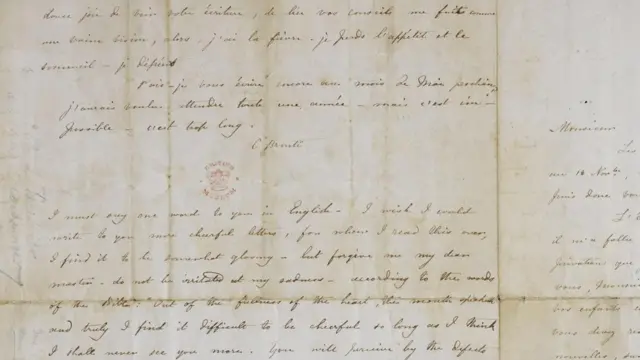 douce joie de voir votre écriture, de lire vos conseils me fuit comme
une vaine vision, alors - j'ai la fièvre - je perds l'appétit et le
sommeil - je dépéris
Puis-je vous écrire encore au mois de Mai prochain,
j'aurais voulu attendre toute une année - mais c'est im-
possible - c'est trop long.
C Brontë
MUSEUM
I must say one word to you in English - I wish I could
write to you more cheerful letters, for when I read this over,
I find it to be somewhat gloomy - but forgive me my dear
master - do not be irritated at my sadness - according to the words
of the Bible: "Out of the fulness of the heart, the mouth speaketh
and truly I find it difficult to be cheerful so long as I think
I shall never see you more. You will perceive by the defects
Monsieur
Les
au 18 Novbre
puis donc vous
L'é
il m'a fallu
privation que
vous, Monsieur
vos enfants
vous diray
nouvelles,